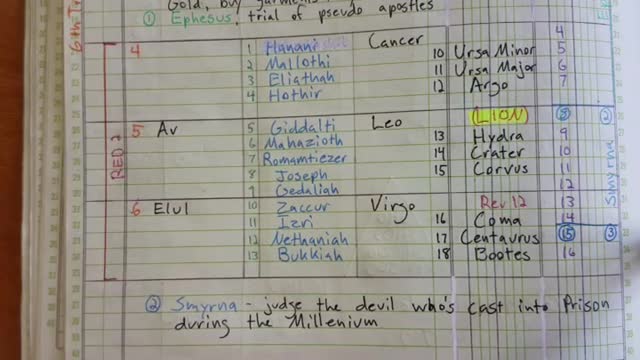 Gold, buy garments
① Ephesus, trial of pseudo apostles
6th Tr
RED 2
4 1 Hanani Cancer 4
2 Mallothi 10 Ursa Minor 5
3 Eliathah 11 Ursa Major 6
4 Hothir 12 Argo 7
5 Av 5 Giddalti Leo LION ⑧ ②
6 Mahazioth 13 Hydra 9
7 Romamtiezer 14 Crater 10
8 Joseph 15 Corvus 11
9 Gedaliah 12
6 Elul 10 Zaccur Virgo Rev 12 13
11 Izri 16 Coma 14
12 Nethaniah 17 Centaurus ⑮ ③
13 Bukkiah 18 Bootes 16
Smyrna
② Smyrna - judge the devil who's cast into Prison
during the Millenium